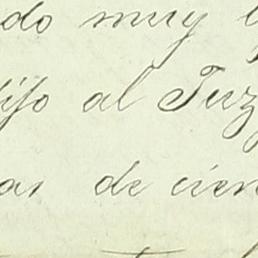 do muy
dijo al Juz
as de cien